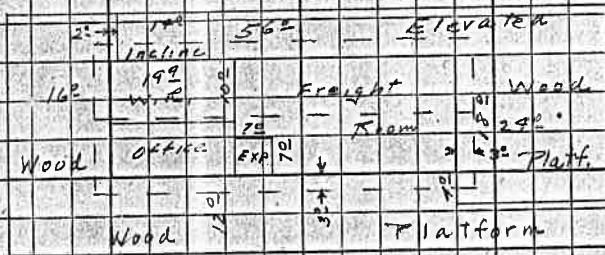 2⁰ 56⁰ Elevated
Incline
16⁰ 19⁹ W.R. Freight Wood
7⁰ Room 24⁰
Wood Office EXP 7⁰ 3⁰ Platf.
12⁰ 3⁰
Wood Platform